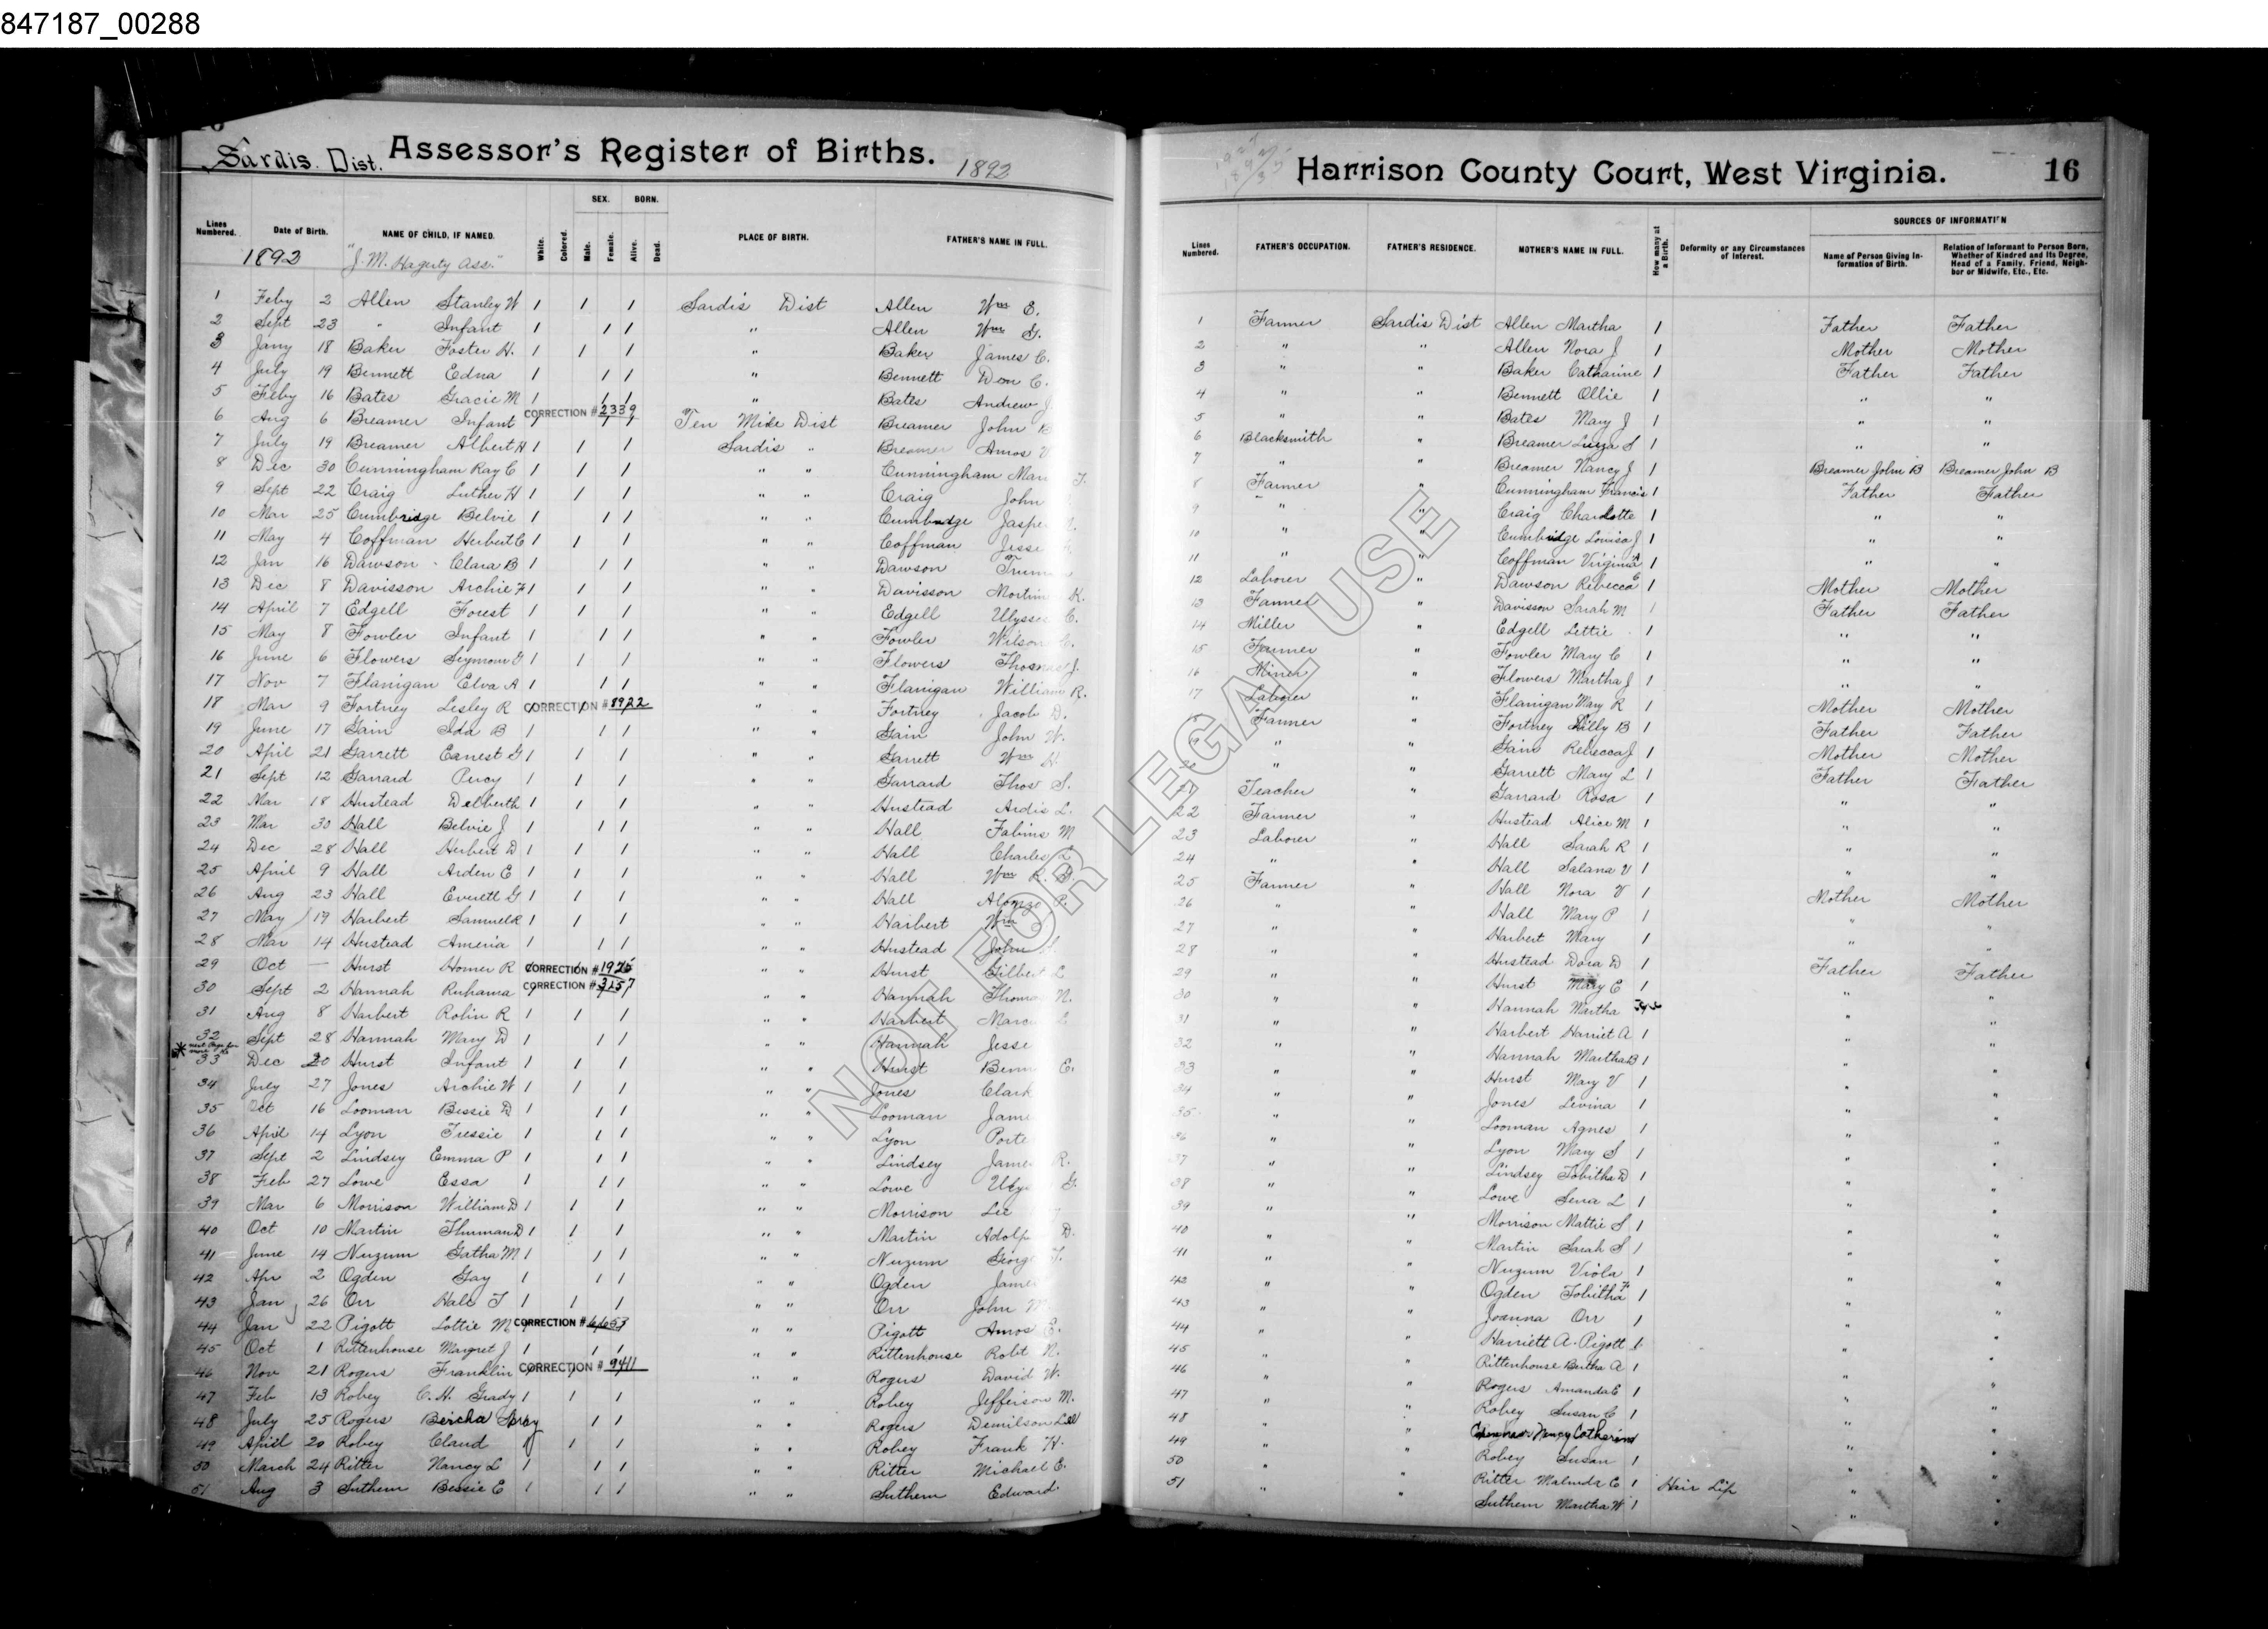 847187_00288
Sardis Dist. Assessor's Register of Births. 1892
Lines Numbered. Date of Birth. NAME OF CHILD, IF NAMED. White. Colored. SEX. Male. Female. BORN. Alive. Dead. PLACE OF BIRTH. FATHER'S NAME IN FULL.
1892 "J. M. Hagerty Ass."
1 Feby 2 Allen Stanley W 1 1 1 Sardis Dist Allen Wm E.
2 Sept 23 " Infant 1 1 1 " Allen Wm G.
3 Jany 18 Baker Foster H. 1 1 1 " Baker James C.
4 July 19 Bennett Edna 1 1 1 " Bennett Don C.
5 Feby 16 Bates Gracie M 1 1 1 " Bates Andrew J
6 Aug 6 Breamer Infant CORRECTION # 2339 Ten Mile Dist Breamer John B
7 July 19 Breamer Albert H 1 1 1 Sardis " Breamer Amos
8 Dec 30 Cunningham Ray C 1 1 1 " " Cunningham
9 Sept 22 Craig Luther H 1 1 1 " " Craig John
10 Mar 25 Cumbridge Belvie 1 1 1 " " Cumbridge
11 May 4 Coffman Herbert C 1 1 1 " " Coffman Jesse
12 Jan 16 Dawson Clara B 1 1 1 " " Dawson
13 Dec 8 Davisson Archie F 1 1 1 " " Davisson K.
14 April 7 Edgell Forest 1 1 1 " " Edgell Ulysses C.
15 May 8 Fowler Infant 1 1 1 " " Fowler Wilson C.
16 June 6 Flowers Seymour G 1 1 1 " " Flowers Thomas J.
17 Nov 7 Flanigan Elva A 1 1 1 " " Flanigan William R.
18 Mar 9 Fortney Lesley R CORRECTION # 8922 " " Fortney Jacob D.
19 June 17 Gain Ida B 1 1 1 " " Gain John W.
20 April 21 Garrett Earnest G 1 1 1 " " Garrett Wm H.
21 Sept 12 Garrard Percy 1 1 1 " " Garrard Thos S.
22 Mar 18 Hustead Delberth 1 1 1 " " Hustead Ardis L.
23 Mar 30 Hall Belvie J 1 1 1 " " Hall Fabius M
24 Dec 28 Hall Herbert D 1 1 1 " " Hall Charles L
25 April 9 Hall Arden E 1 1 1 " " Hall Wm R. B.
26 Aug 23 Hall Everett G 1 1 1 " " Hall Alonzo P.
27 May 19 Harbert Samuel R 1 1 1 " " Harbert Wm
28 Mar 14 Hustead Ameria 1 1 1 " " Hustead John
29 Oct — Hurst Homer R CORRECTION # 1925 " " Hurst Gilbert L
30 Sept 2 Hannah Ruhama CORRECTION # 3257 " " Hannah Thomas N.
31 Aug 8 Harbert Rolin R 1 1 1 " " Harbert
32 Sept 28 Hannah Mary D 1 1 1 " " Hannah Jesse
33 Dec 20 Hurst Infant 1 1 1 " " Hurst E.
34 July 27 Jones Archie W 1 1 1 " " Jones Clark
35 Oct 16 Looman Bessie D 1 1 1 " " Looman
36 April 14 Lyon Tressie 1 1 1 " " Lyon
37 Sept 2 Lindsey Emma P 1 1 1 " " Lindsey James R.
38 Feb 27 Lowe Essa 1 1 1 " " Lowe G.
39 Mar 6 Morrison William D 1 1 1 " " Morrison Lee
40 Oct 10 Martin Thurman D 1 1 1 " " Martin Adolp D.
41 June 14 Nuzum Gatha M 1 1 1 " " Nuzum George T.
42 Apr 2 Ogden Gay 1 1 1 " " Ogden James
43 Jan 26 Orr Hall T 1 1 1 " " Orr John
44 Jan 22 Pigott Lottie M CORRECTION # " " Pigott Amos E.
45 Oct 1 Rittenhouse Margret J 1 1 1 " " Rittenhouse Robt N.
46 Nov 21 Rogers Franklin CORRECTION # 9411 " " Rogers David W.
47 Feb 13 Robey C. H. Grady 1 1 1 " " Robey Jefferson M.
48 July 25 Rogers Bircha Spray 1 1 " " Rogers Demilson Lell
49 April 20 Robey Claud 1 1 1 " " Robey Frank H.
50 March 24 Ritter Nancy L 1 1 1 " " Ritter Michael E.
51 Aug 3 Suthern Bessie E 1 1 1 " " Suthern Edward
Harrison County Court, West Virginia. 16
Lines Numbered. FATHER'S OCCUPATION. FATHER'S RESIDENCE. MOTHER'S NAME IN FULL. How many at a Birth. Deformity or any Circumstances of Interest. SOURCES OF INFORMATION Name of Person Giving Information of Birth. Relation of Informant to Person Born, Whether of Kindred and Its Degree, Head of a Family, Friend, Neighbor or Midwife, Etc., Etc.
1 Farmer Sardis Dist Allen Martha 1 Father Father
2 " " Allen Nora J 1 Mother Mother
3 " " Baker Catharine 1 Father Father
4 " " Bennett Ollie 1 " "
5 " " Bates Mary J 1 " "
6 Blacksmith " Breamer Luiza S 1 " "
7 " " Breamer Nancy J 1 Breamer John B Breamer John B
8 Farmer " Cunningham Francis 1 Father Father
9 " " Craig Charlotte 1 " "
10 " " Cumbridge Louisa J 1 " "
11 " " Coffman Virginia A 1 " "
12 Laborer " Dawson Rebecca E 1 Mother Mother
13 Farmer " Davisson Sarah M 1 Father Father
14 Miller " Edgell Lettie 1 " "
15 Farmer " Fowler Mary C 1 " "
16 Miner " Flowers Martha J 1 " "
17 Laborer " Flanigan Mary R 1 Mother Mother
Farmer " Fortney Lilly B 1 Father Father
" " Gain Rebecca J 1 Mother Mother
" " Garrett Mary L 1 Father Father
Teacher " Garrard Rosa 1 " "
22 Farmer " Hustead Alice M 1 " "
23 Laborer " Hall Sarah R 1 " "
24 " " Hall Salana V 1 " "
25 Farmer " Hall Nora V 1 Mother Mother
26 " " Hall Mary P 1 " "
27 " " Harbert Mary 1 " "
28 " " Hustead Dora D 1 Father Father
29 " " Hurst Mary E 1 " "
30 " " Hannah Martha " "
31 " " Harbert Harriet A 1 " "
32 " " Hannah Martha B 1 " "
33 " " Hurst Mary V 1 " "
34 " " Jones Levina 1 " "
35 " " Looman Agnes 1 " "
36 " " Lyon Mary S 1 " "
37 " " Lindsey Tobitha D 1 " "
38 " " Lowe Sena L 1 " "
39 " " Morrison Mattie S 1 " "
40 " " Martin Sarah S 1 " "
41 " " Nuzum Viola 1 " "
42 " " Ogden Tobitha F 1 " "
43 " " Joanna Orr 1 " "
44 " " Harriett A. Pigott 1 " "
45 " " Rittenhouse Bertha A 1 " "
46 " " Rogers Amanda E 1 " "
47 " " Robey Susan C 1 " "
48 " " Nancy Catherine " "
49 " " Robey Susan 1 " "
50 " " Ritter Malinda C 1 Hair Lip " "
51 " " Suthern Martha W 1 " "
NOT FOR LEGAL USE